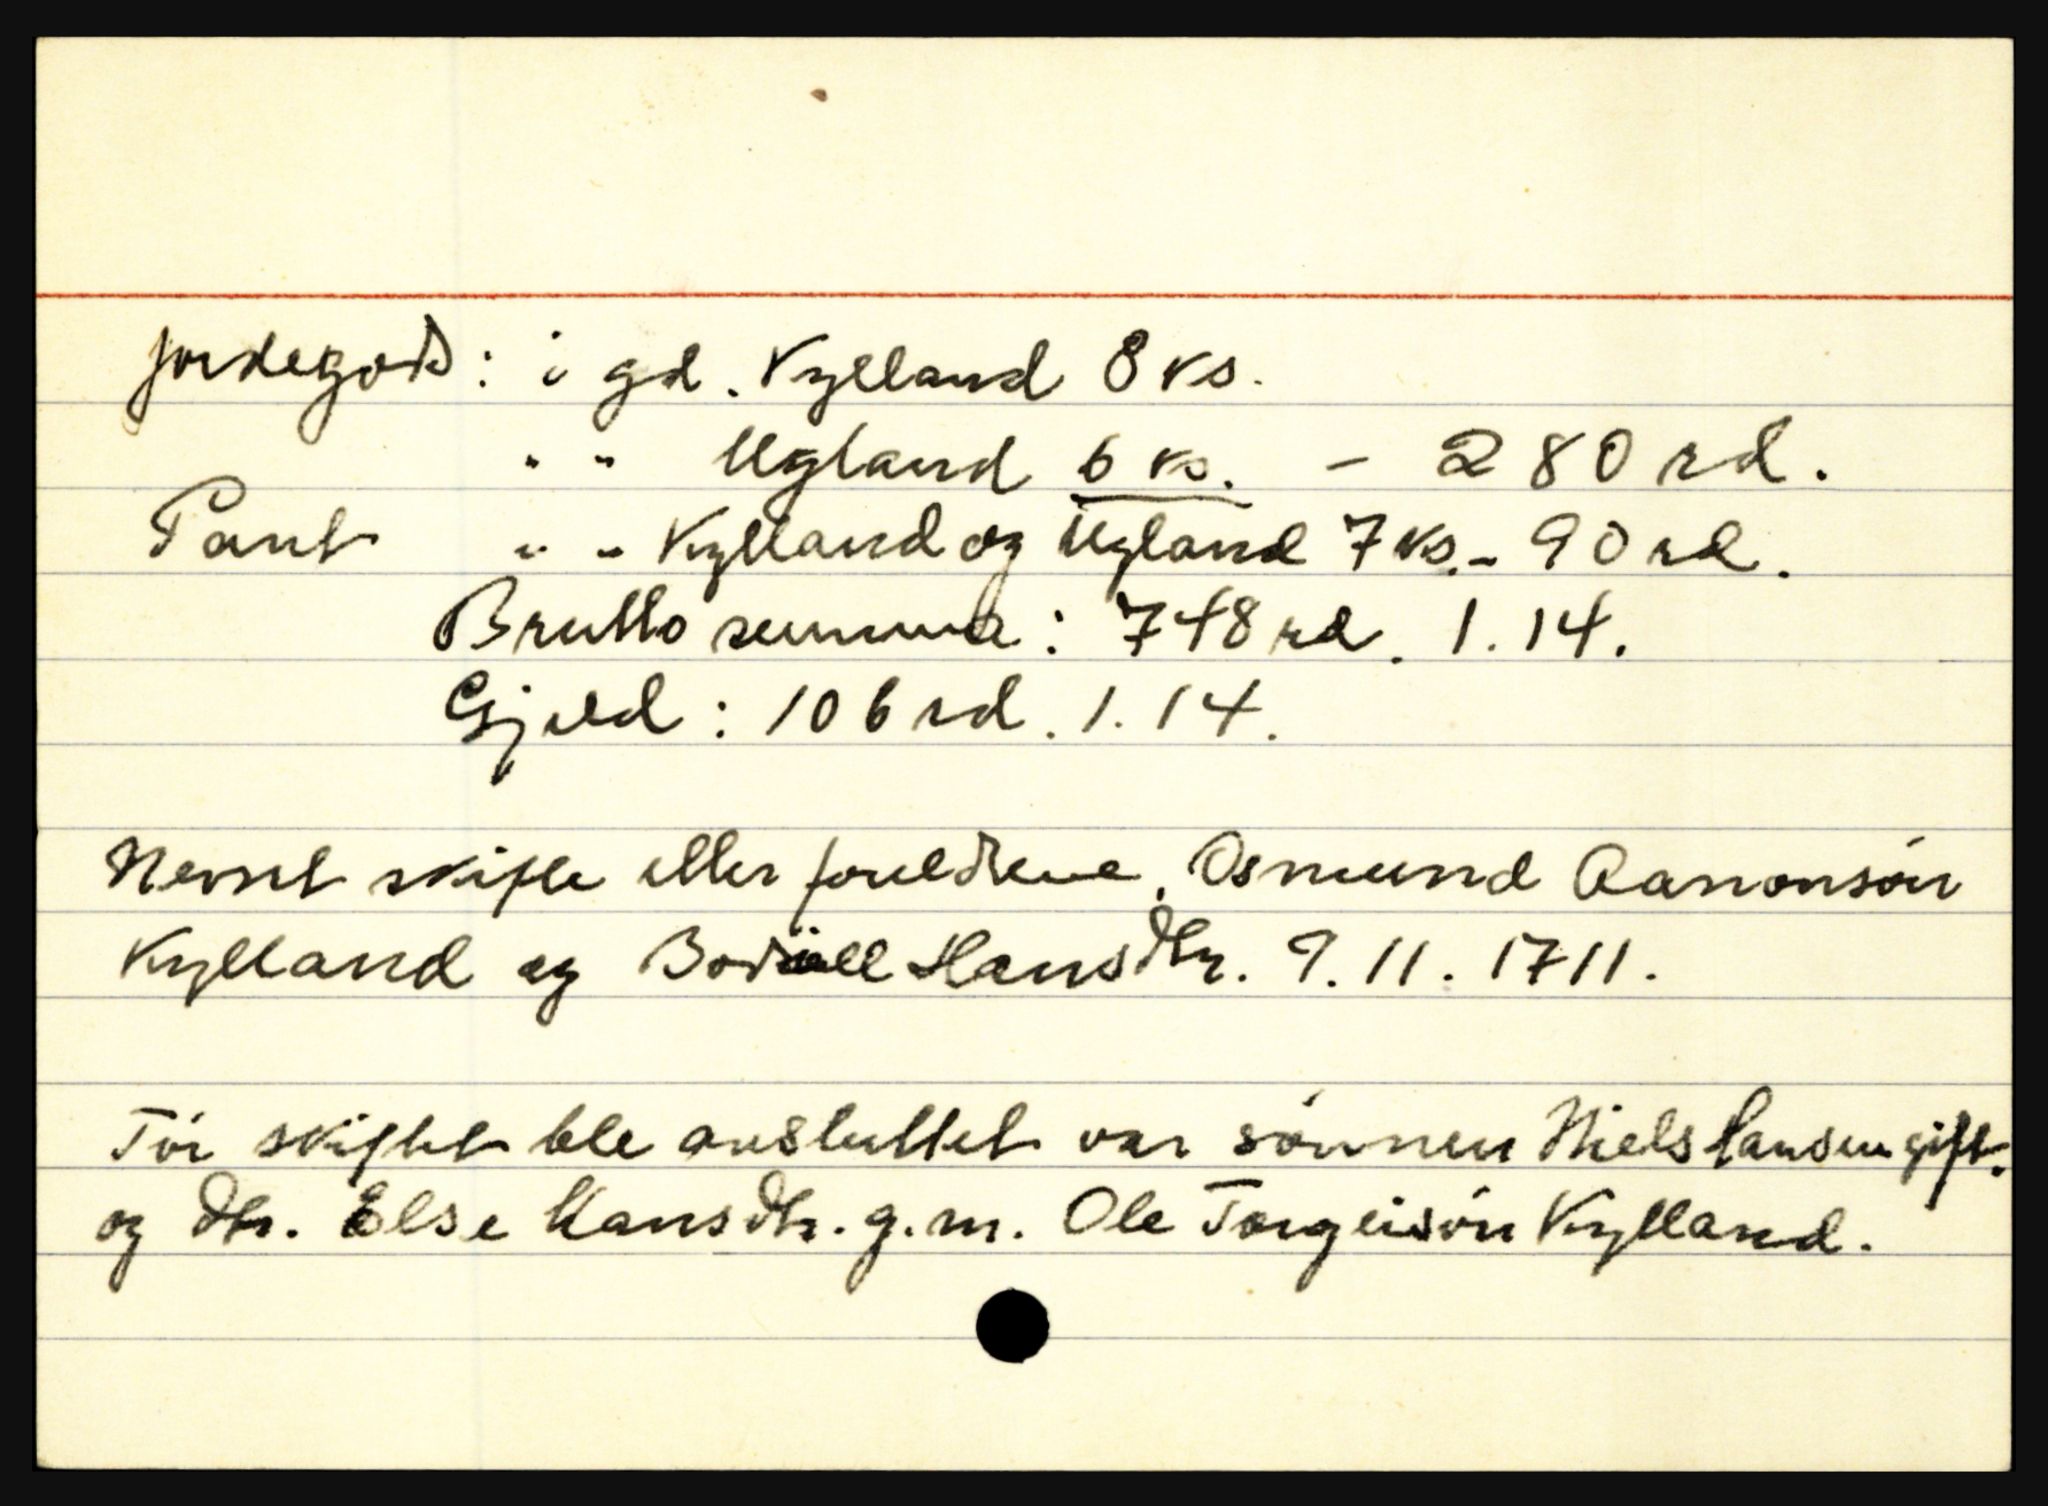 Jordegods: i gd. Kylland 8 ks.
" " Ugland 6 ks. - 280 rd.
Pant " " Kylland og Ugland 7 ks. - 90 rd.
Brutto summa: 748 rd. 1. 14.
Gjeld: 106 rd. 1. 14.
Nevnt skifte etter foreldrene, Osmund Aanonsøn
Kylland og Bodill Hansdtr. 9. 11. 1711.
Før skiftet ble avsluttet var sønnen Niels Hansen gift.
og dtr. Else Hansdtr. g. m. Ole Torgeisøn Kylland.